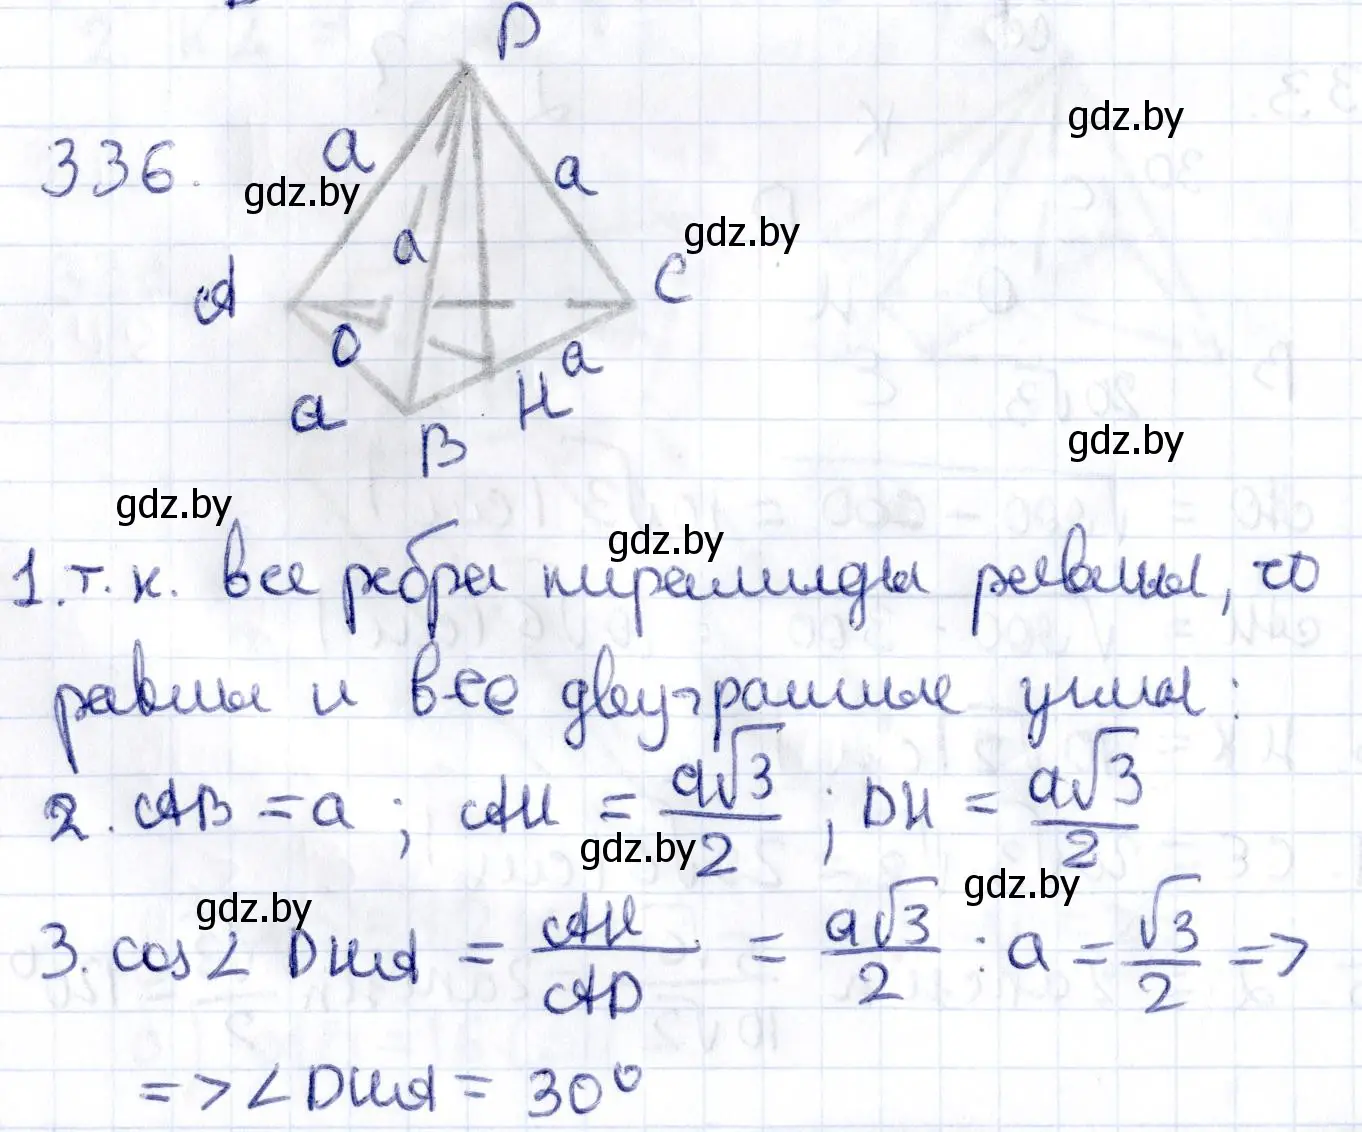 D
336.
a
a
gdz.by
gdz.by
gdz.by
a
A
C
O
a
a
H
B
gdz.by
gdz.by
gdz.by
1. т.к. все ребра пирамиды равны, то
равны и все двугранные углы:
2. AB = a ; AH = a√3/2 ; DH = a√3/2
gdz.by
gdz.by
gdz.by
3. cos∠ DHA = AH/AD = a√3/2 : a = √3/2 =>
=> ∠DHA = 30°